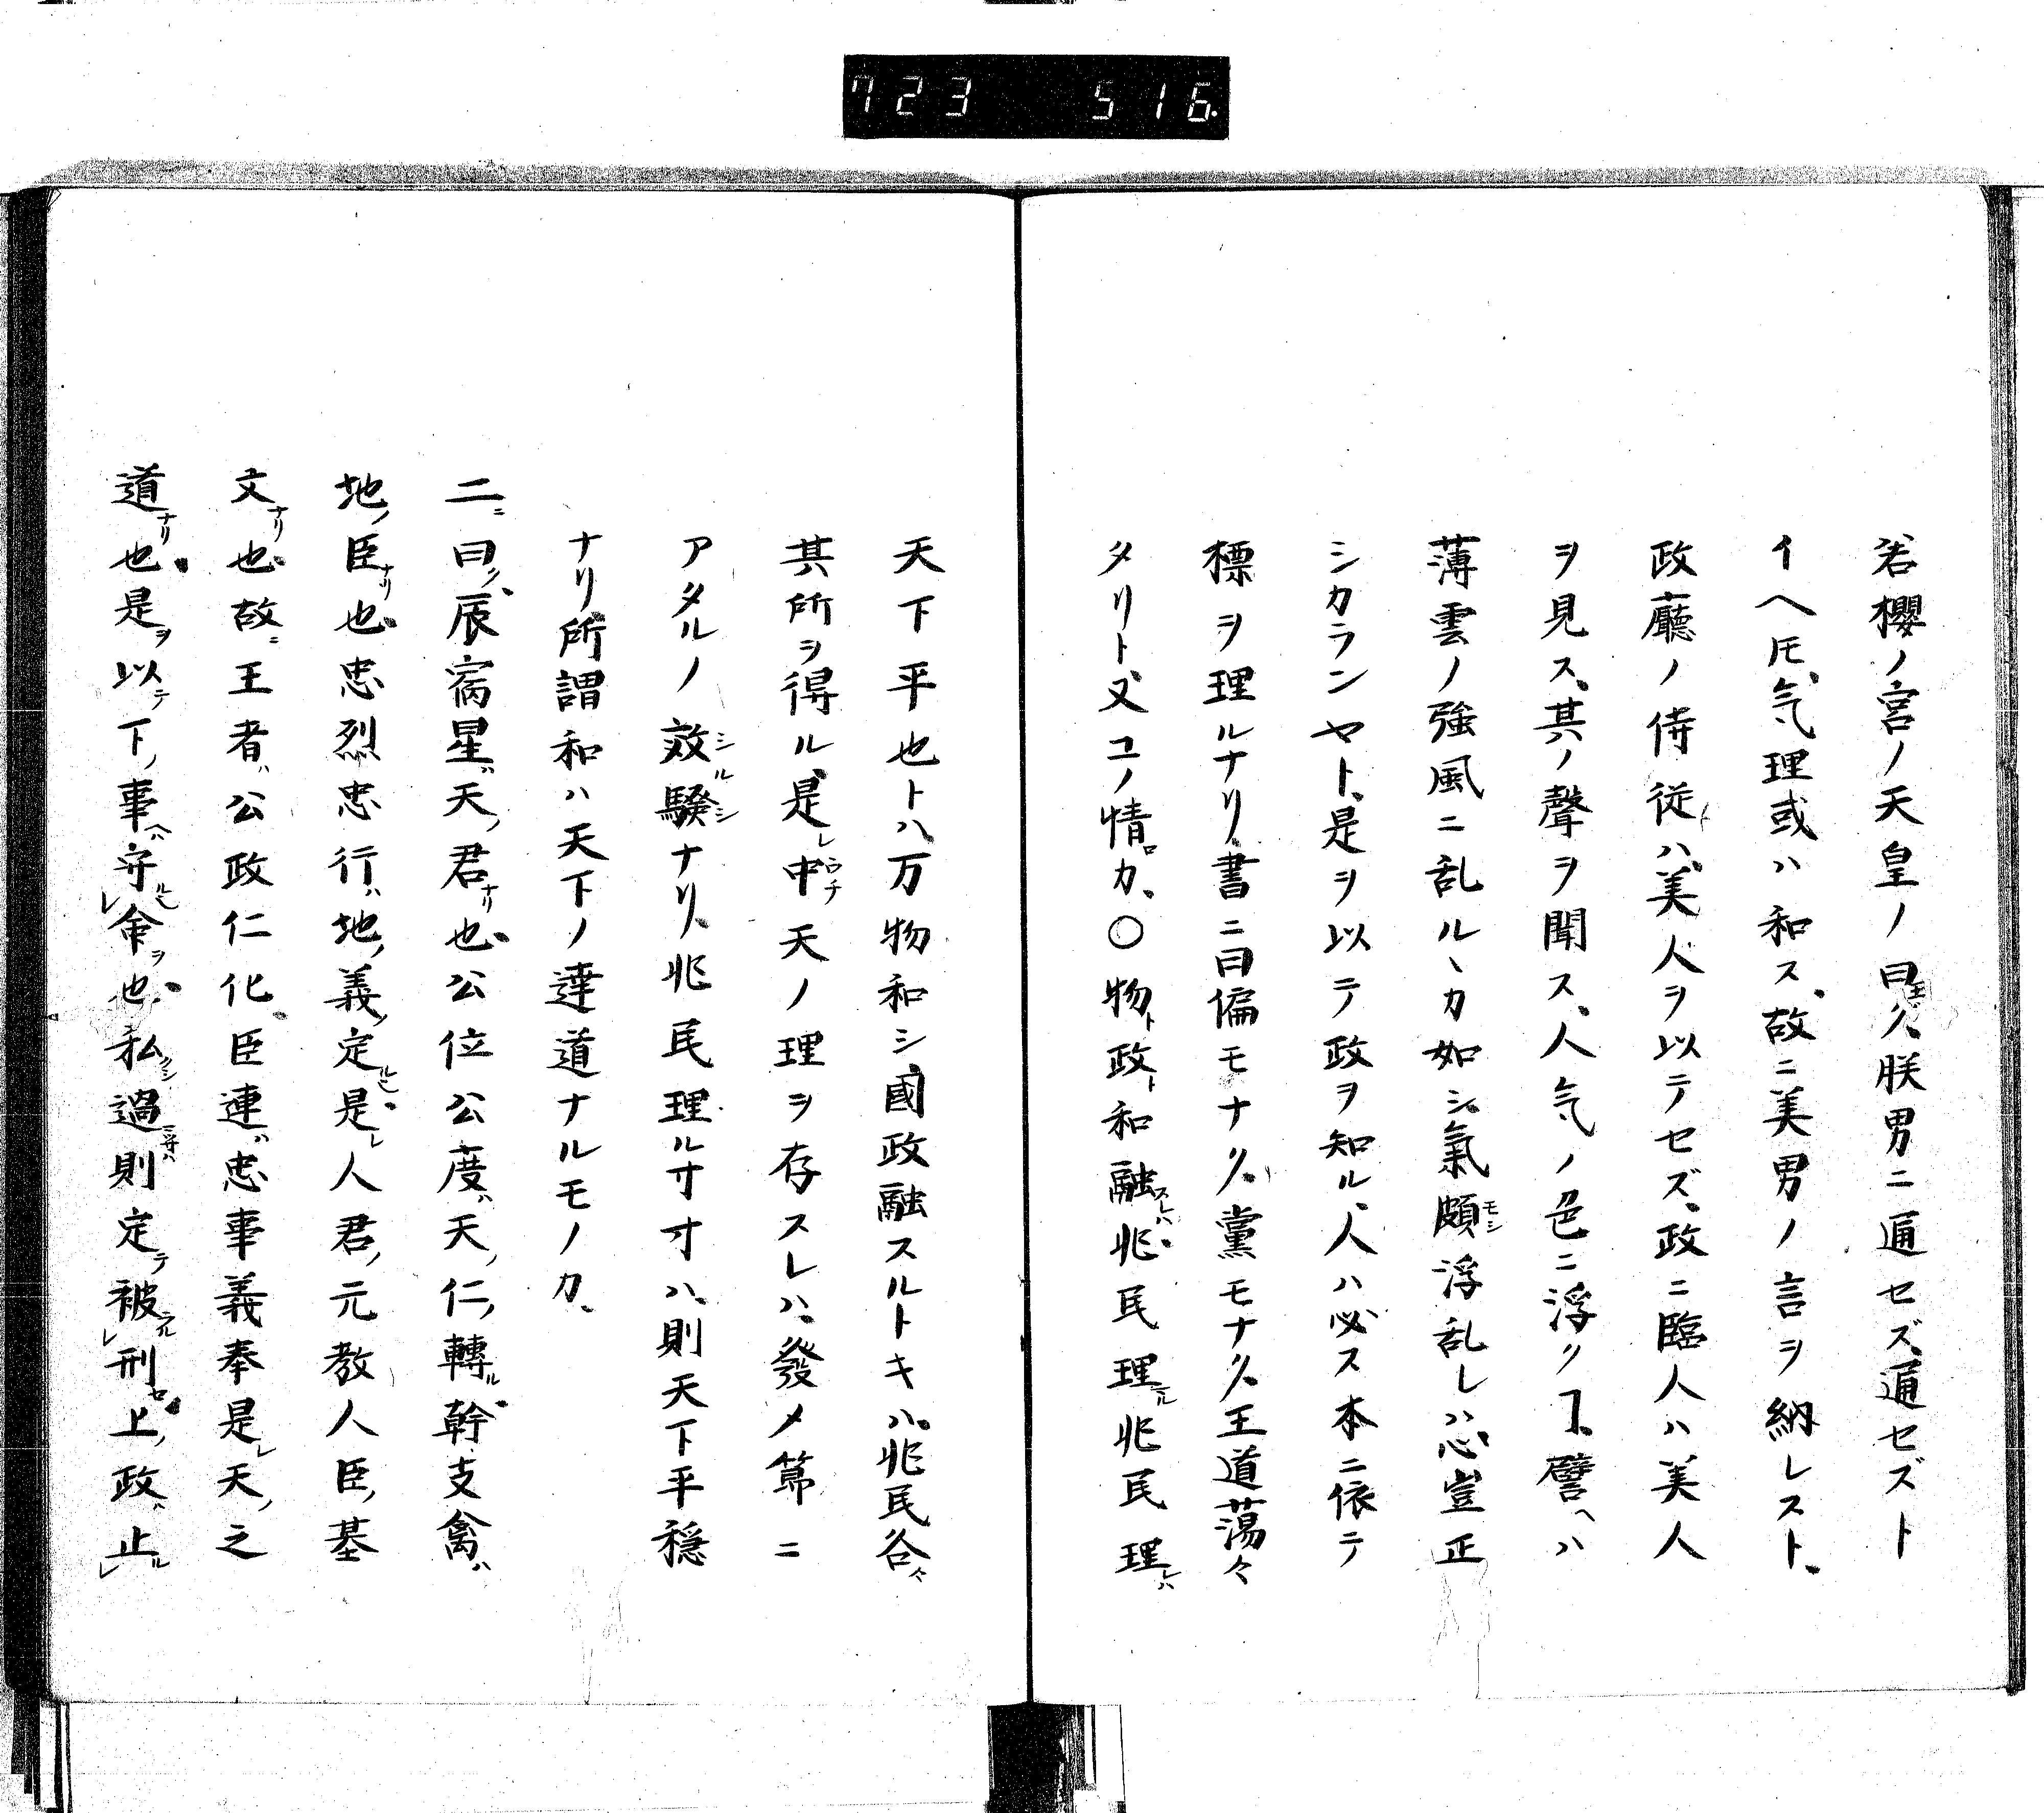 723 516
若櫻ノ宮ノ天皇ノ曰久、朕男ニ通セズ、通セズト
イヘ𪜈、气理或ハ和ス、故ニ美男ノ言ヲ納レスト、
政廳ノ侍従ハ、美人ヲ以テセズ、政ニ臨人ハ美人
ヲ見ス、其ノ聲ヲ聞ス、人气ノ色ニ浮クヿ、譬ヘハ
薄雲ノ強風ニ乱ルヽカ如シ、氣頗モシ浮乱レハ心豈正
シカランヤト、是ヲ以テ政ヲ知ル、人ハ必ス本ニ依テ
標ヲ理ルナリ、書ニ曰偏モナク、黨モナク、王道蕩々
タリト、又コノ情カ、〇物ト政ト和融スレハ兆民理ル兆民理レハ
天下平也トハ、万物和シ、國政融スルトキハ、兆民各々
其所ヲ得ル、是レ中ウチ天ノ理ヲ存スレハ、發メ節ニ
アタルノ效シルシ驗シナリ、兆民理ル寸寸ハ、則天下平穏
ナリ、所謂和ハ天下ノ達道ナルモノカ、
二ニ曰ク、辰宿星ハ天ノ君ナリ也、公位公度ハ天ノ仁、轉ル幹、支禽ハ
地ノ臣ナリ也、忠烈忠行ハ地ノ義、定ル是レ人君ノ元教人臣ノ基
文ナリ也、故ニ王者ハ公政仁化、臣連ハ忠事義奉是レ天ノ之
道ナリ也、是ヲ以テ下ノ事ハ守ル命ヲ也、私過則定テ被刑上ノ政ハ止ル